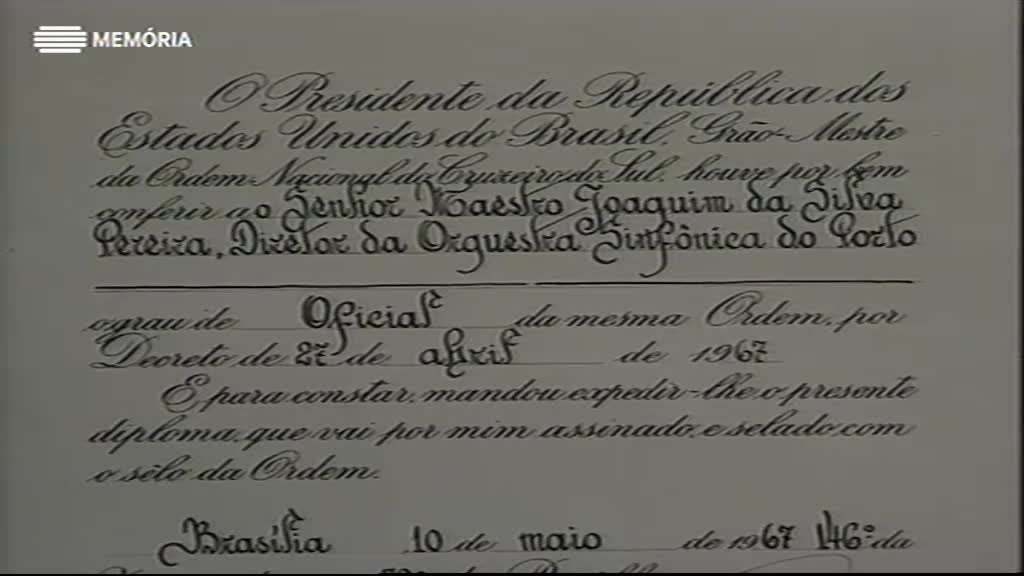 MEMÓRIA
O Presidente da República dos
Estados Unidos do Brasil, Grão-Mestre
da Ordem Nacional do Cruzeiro do Sul, houve por bem
conferir ao Senhor Maestro Joaquim da Silva
Pereira, Diretor da Orquestra Sinfônica do Porto
o grau de Oficial da mesma Ordem, por
Decreto de 27 de abril de 1967
E para constar, mandou expedir-lhe o presente
diploma, que vai por mim assinado, e selado com
o sêlo da Ordem.
Brasília 10 de maio de 1967 146º da